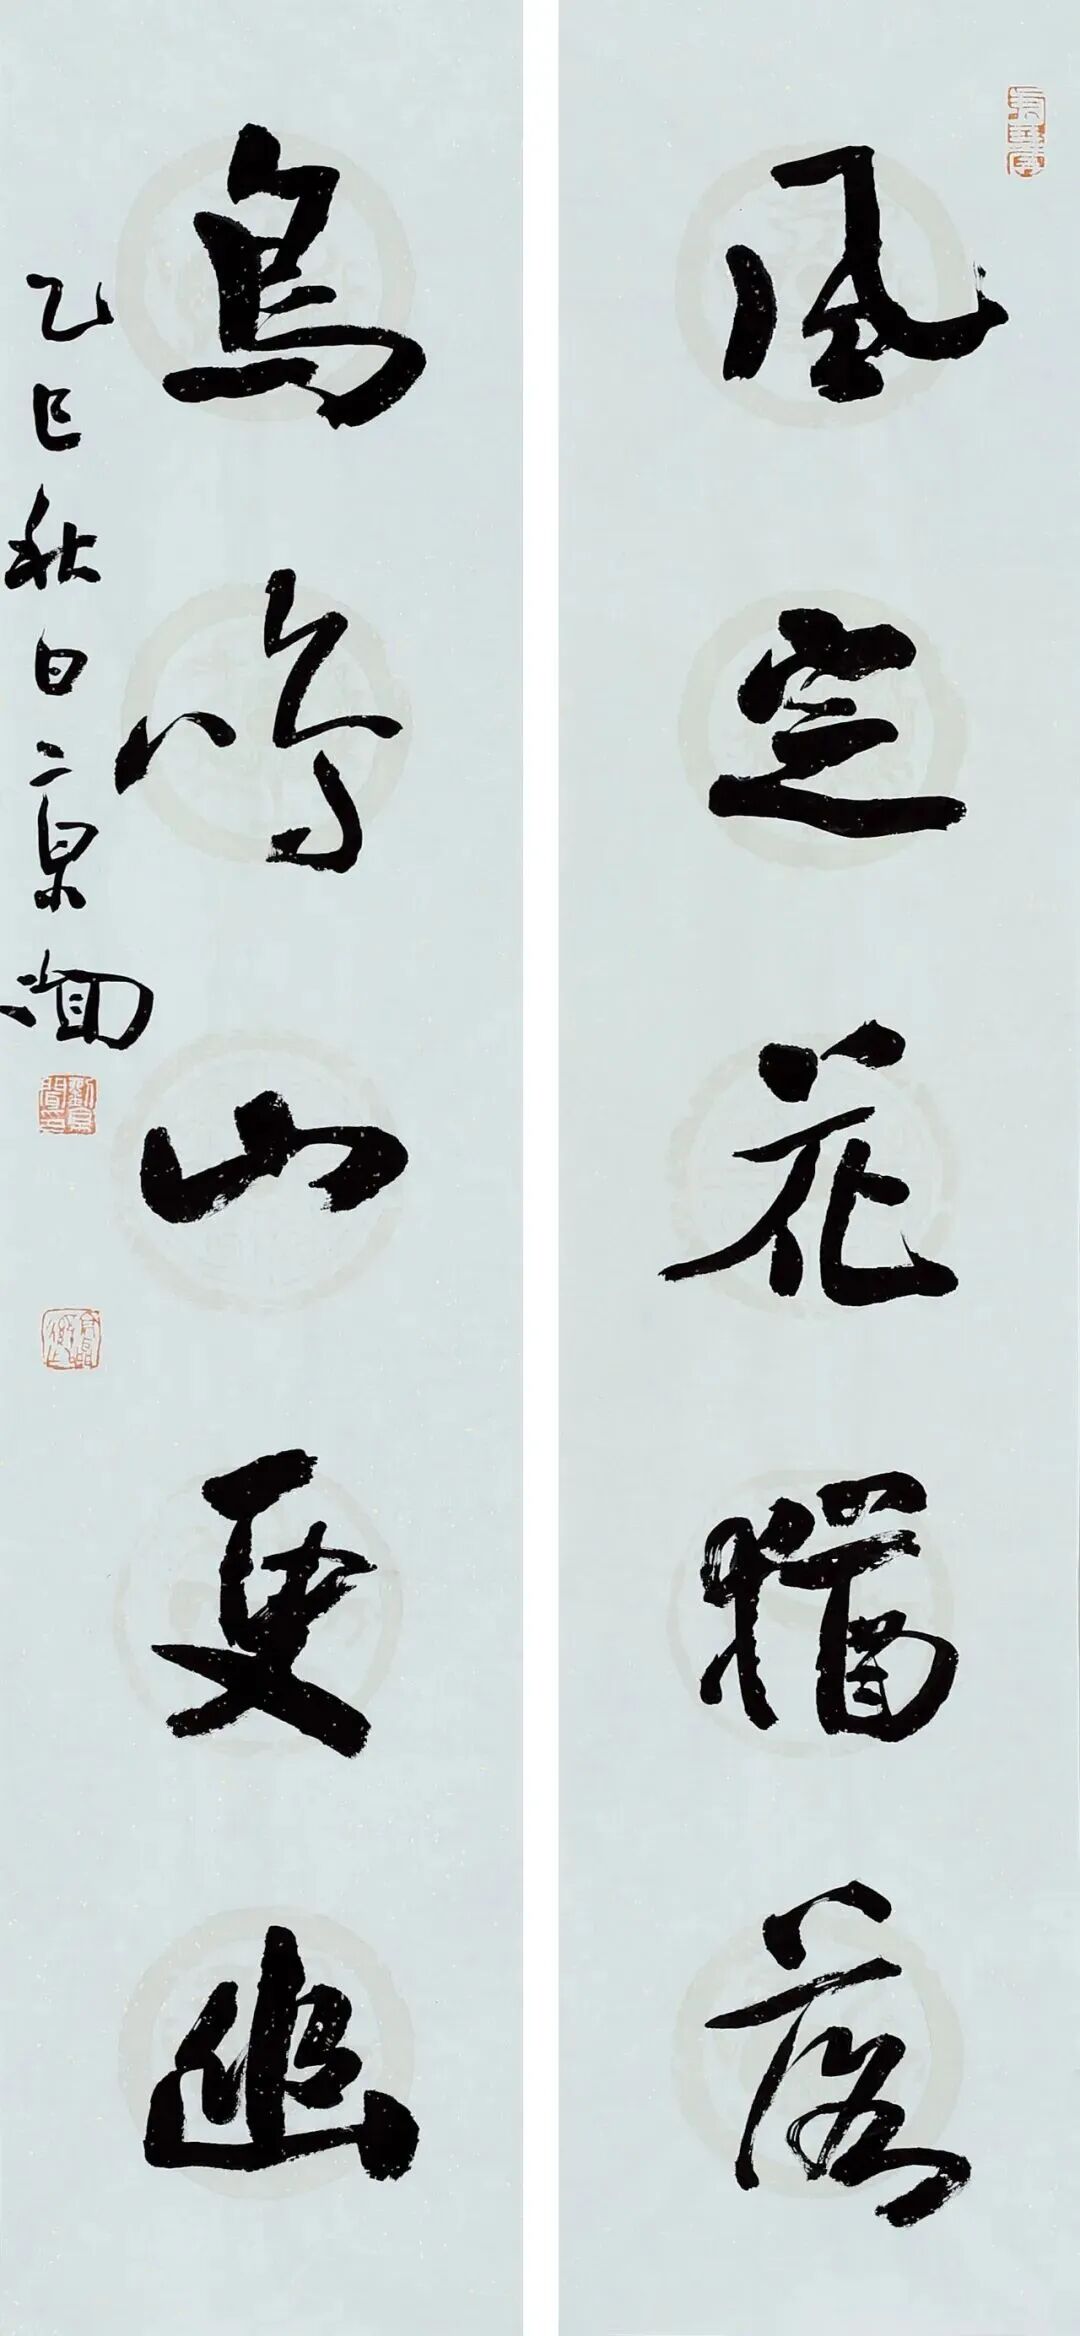 風定花猶落
鳥鳴山更幽
乙巳秋日景